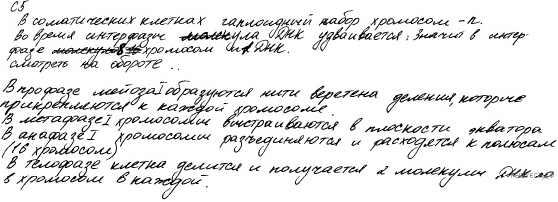 С5
В соматических клетках гаплоидный набор хромосом - n.
во время интерфазы молекула ДНК удваивается: значит в интер-
фазе хромосом и ДНК.
смотреть на обороте ..
В профазе мейоза I образуются нити веретена деления, которые
прикрепляются к каждой хромосоме.
В метафазе I хромосомы выстраиваются в плоскости экватора
В анафазе I хромосомы разъединяются и расходятся к полюсам
(16 хромосом)
В телофазе клетка делится и получается 2 молекулы ДНК на
8 хромосом в каждой.